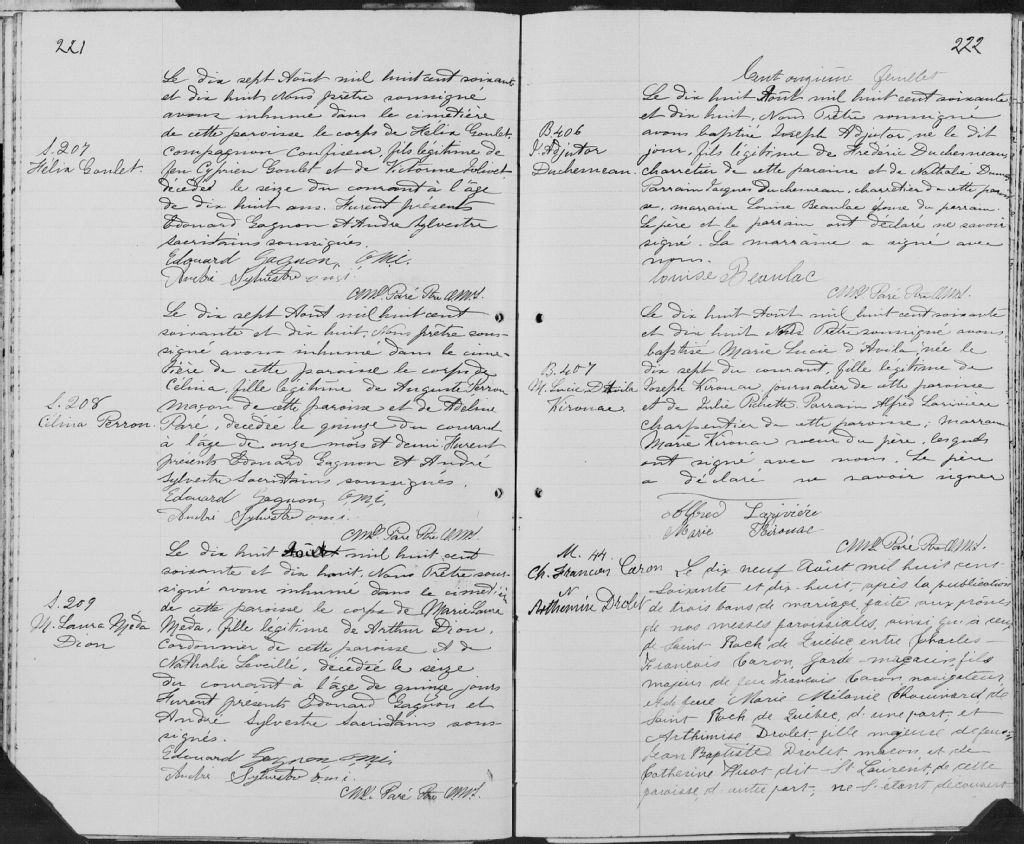 221
Le dix sept Août mil huit cent soixante
et dix huit Nous prêtre soussigné
avons inhumé dans le cimetière
de cette paroisse le corps de Hélix Goulet,
S. 207
Hélix Goulet.
compagnon confiseur, fils légitime de
feu Cyprien Goulet et de Victorine Jolivet
décédé le seize du courant à l'âge
de dix huit ans. Furent présents
Edouard Gagnon et André Sylvestre
sacristains soussignés.
Edouard Gagnon, O.M.I.
André Sylvestre o.m.i.
Paré Ptre O.M.I.
Le dix sept Août mil huit cent
soixante et dix huit. Nous prêtre sous-
signé avons inhumé dans le cime-
tière de cette paroisse le corps de
Célina, fille légitime de Auguste Perron
S. 208
Célina Perron.
maçon de cette paroisse et de Adeline
Paré, décédée le quinze du courant
à l'âge de onze mois et demi. Furent
présents Edouard Gagnon et André
Sylvestre Sacristains soussignés.
Edouard Gagnon, O.M.I.
André Sylvestre o.m.i.
Paré Ptre O.M.I.
Le dix huit Août mil huit cent
soixante et dix huit. Nous Prêtre sous-
signé avons inhumé dans le cimetière
S. 209
M. Laura Méda
Dion
de cette paroisse le corps de Marie Laura
Méda, fille légitime de Arthur Dion,
Cordonnier de cette paroisse et de
Nathalie Laveille, décédée le seize
du courant à l'âge de quinze jours
Furent présents Edouard Gagnon et
André Sylvestre Sacristains sous-
signés.
Edouard Gagnon o.m.i.
André Sylvestre o.m.i.
Paré Ptre O.M.I.
222
Cent onzième feuillet
Le dix huit Août mil huit cent soixante
et dix huit, Nous Prêtre soussigné
B 406
J. Adjutor
Duchesneau.
avons baptisé Joseph Adjutor, né le dit
jour, fils légitime de Frédéric Duchesneau,
charretier de cette paroisse et de Nathalie
Parrain Jacques Duchesneau, charretier de cette parois-
se, marraine Louise Beaulac épouse du parrain.
Le père et le parrain ont déclaré ne savoir
signé. La marraine a signé avec
nous.
Louise Beaulac
Paré Ptre O.M.I.
Le dix huit Août mil huit cent soixante
et dix huit Nous Prêtre soussigné avons
baptisé Marie Lucie d'Avila née le
B. 407
M. Lucie D'Avila
Kirouac.
dix sept du courant, fille légitime de
Joseph Kirouac, journalier de cette paroisse
et de Julie Pichette. Parrain Alfred Larivière
charpentier de cette paroisse; marraine
Marie Kirouac soeur du père, lesquels
ont signé avec nous. Le père
a déclaré ne savoir signer
Alfred Larivière
Marie Kirouac
Paré Ptre O.M.I.
M. 44.
Ch. François Caron
&
Arthémire Drolet
Le dix neuf Août mil huit cent
soixante et dix-huit, après la publication
de trois bans de mariage, faite aux prônes
de nos messes paroissiales, ainsi qu'à ceux
de Saint Roch de Québec entre Charles
François Caron, Garde-magasin, fils
majeur de feu François Caron navigateur
et de feue Marie Mélanie Chouinard de
Saint Roch de Québec, d'une part, et
Arthémise Drolet, fille majeure de feu
Jean Baptiste Drolet maçon et de
Catherine Huot dit St Laurent, de cette
paroisse, d'autre part, ne s'étant découvert